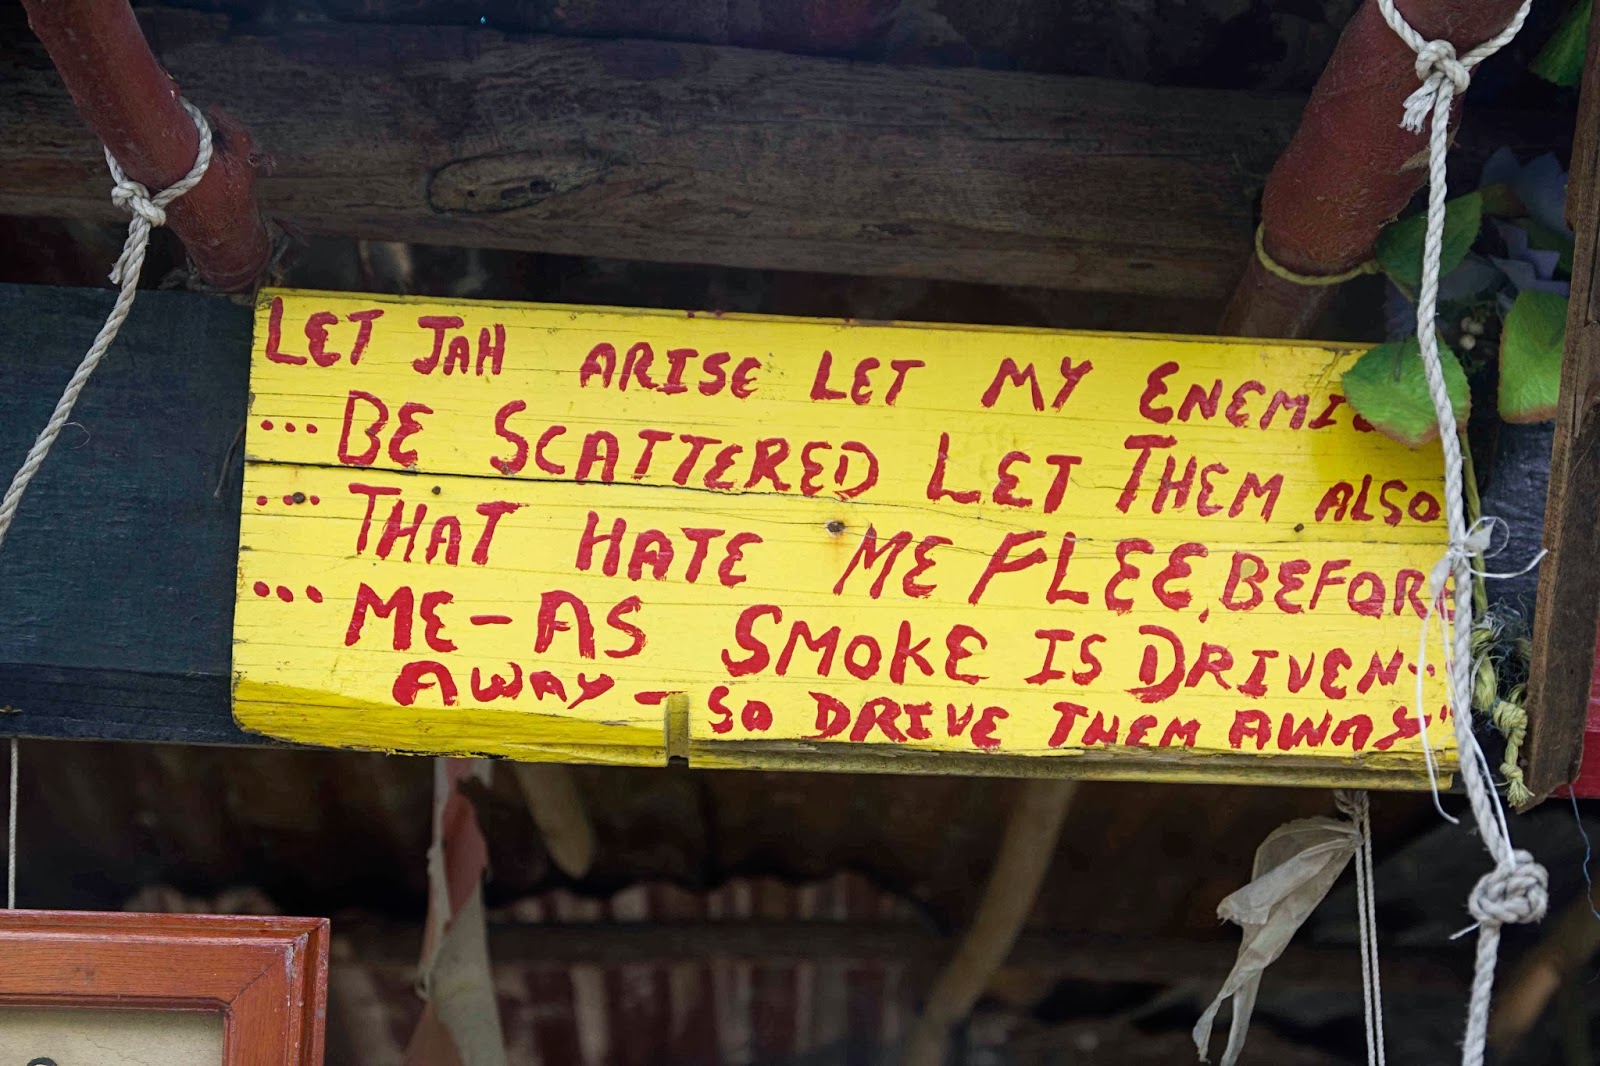 LET JAH ARISE LET MY ENEMI
... BE SCATTERED LET THEM ALSO
... THAT HATE ME FLEE, BEFORE
... ME - AS SMOKE IS DRIVEN--
AWAY - SO DRIVE THEM AWAY"